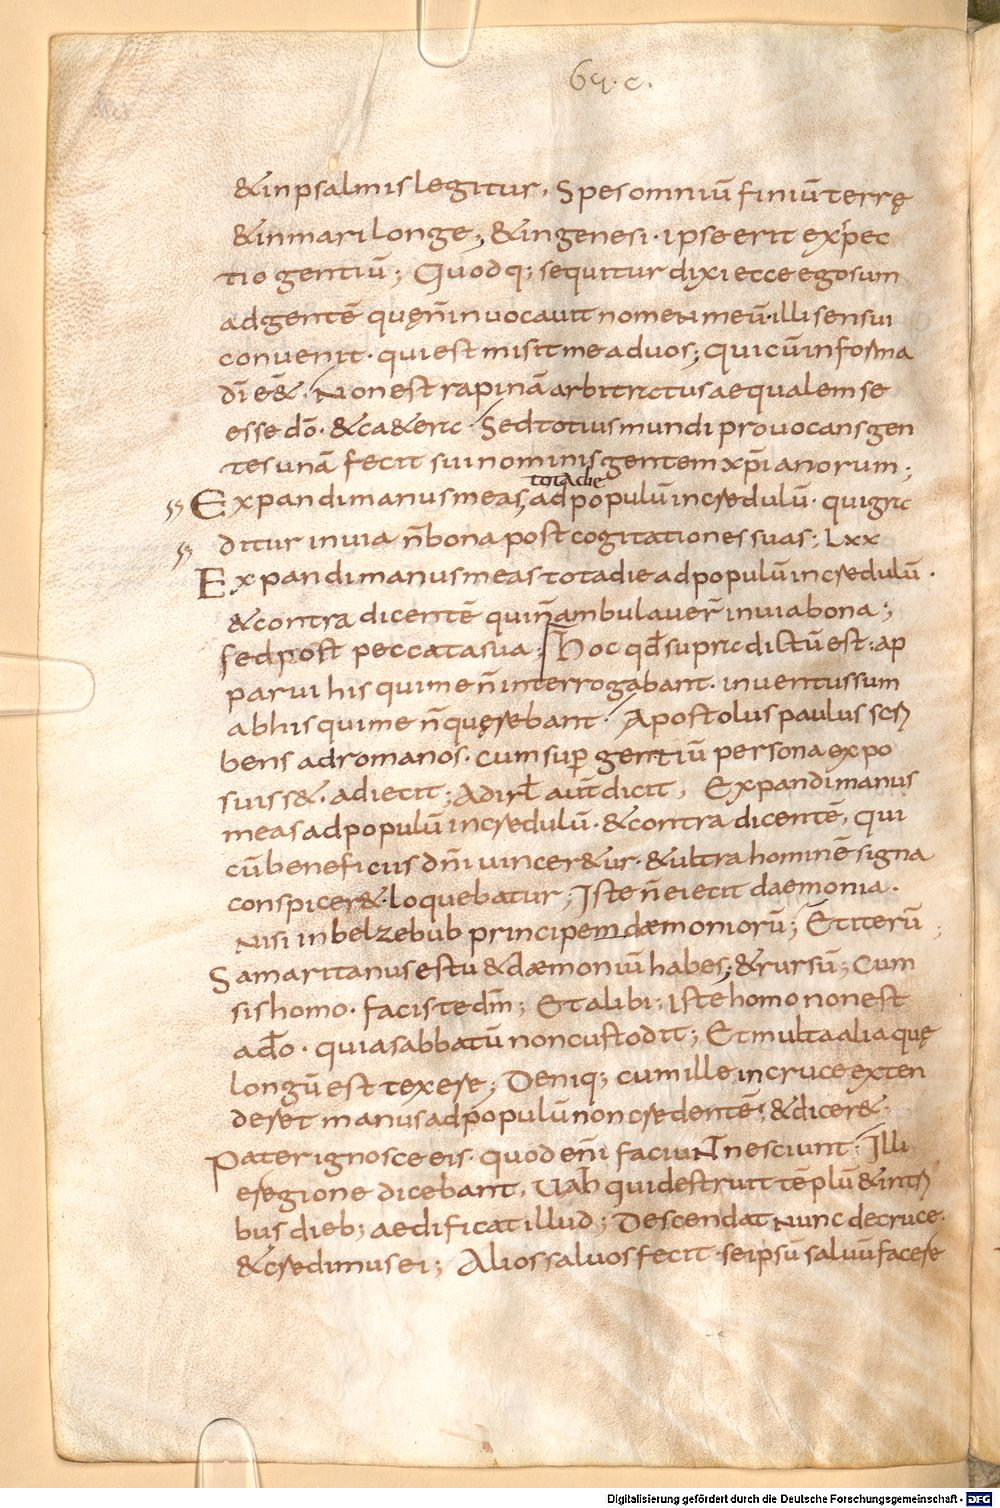 65. c.
&inpsalmis legitur. Spes omniū finiū terrę
&in mari longe; &in genesi. ipse erit expec
tio gentiū; Quodq; sequitur dixi ecce ego sum
ad gentē quę n̄ invocavit nomen meū. illi sensui
convenit. qui est misit me ad vos; Qui cū in forma
dī eēt. Non est rapinā arbitratus aequalem se
esse dō. &cet&era. Sed totius mundi provocans gen
tes unā fecit sui nominis gentem xp̄ianorum;
tota die
Expandi manus meas ad populū incredulū. qui gra
ditur in via n̄ bona post cogitationes suas; Lxx
Expandi manus meas tota die ad populū incredulū.
&contra dicentē qui n̄ ambulaver̄ in via bona;
sed post peccata sua; Hoc qđ supra dictū est. ap
parui his qui me n̄ interrogabant. inventus sum
ab his qui me n̄ quęrebant. Apostolus paulus scri
bens ad romanos. cum sup gentiū persona expo
suiss&. adiecit; Ad irł aut̄ dicit, Expandi manus
meas ad populū incredulū. &contra dicentē, qui
cū beneficiis dn̄i vincer&ur. &ultra hominē signa
conspicer&. loquebatur; Iste n̄ eiecit daemonia.
Nisi in belzebub principem dæmoniorū; Et iterū;
Samaritanus es tu &dæmoniū habes; &rursū; Cum
sis homo. facis te dm̄; Et alibi; iste homo non est
a đo. quia sabbatū non custodit; Et multa alia quę
longū est texere; Deniq; cum ille in cruce exten
deret manus ad populū non credentē; &dicer&.
Pater ignosce eis. quod eni faciunt nesciunt; Illi
e regione dicebant, Uah qui destruit tēplū &in tri
bus dieb; aedificat illud; Descendat nunc de cruce.
&credimus ei; Alios salvos fecit. se ipsū salvū facere
Digitalisierung gefördert durch die Deutsche Forschungsgemeinschaft - DFG